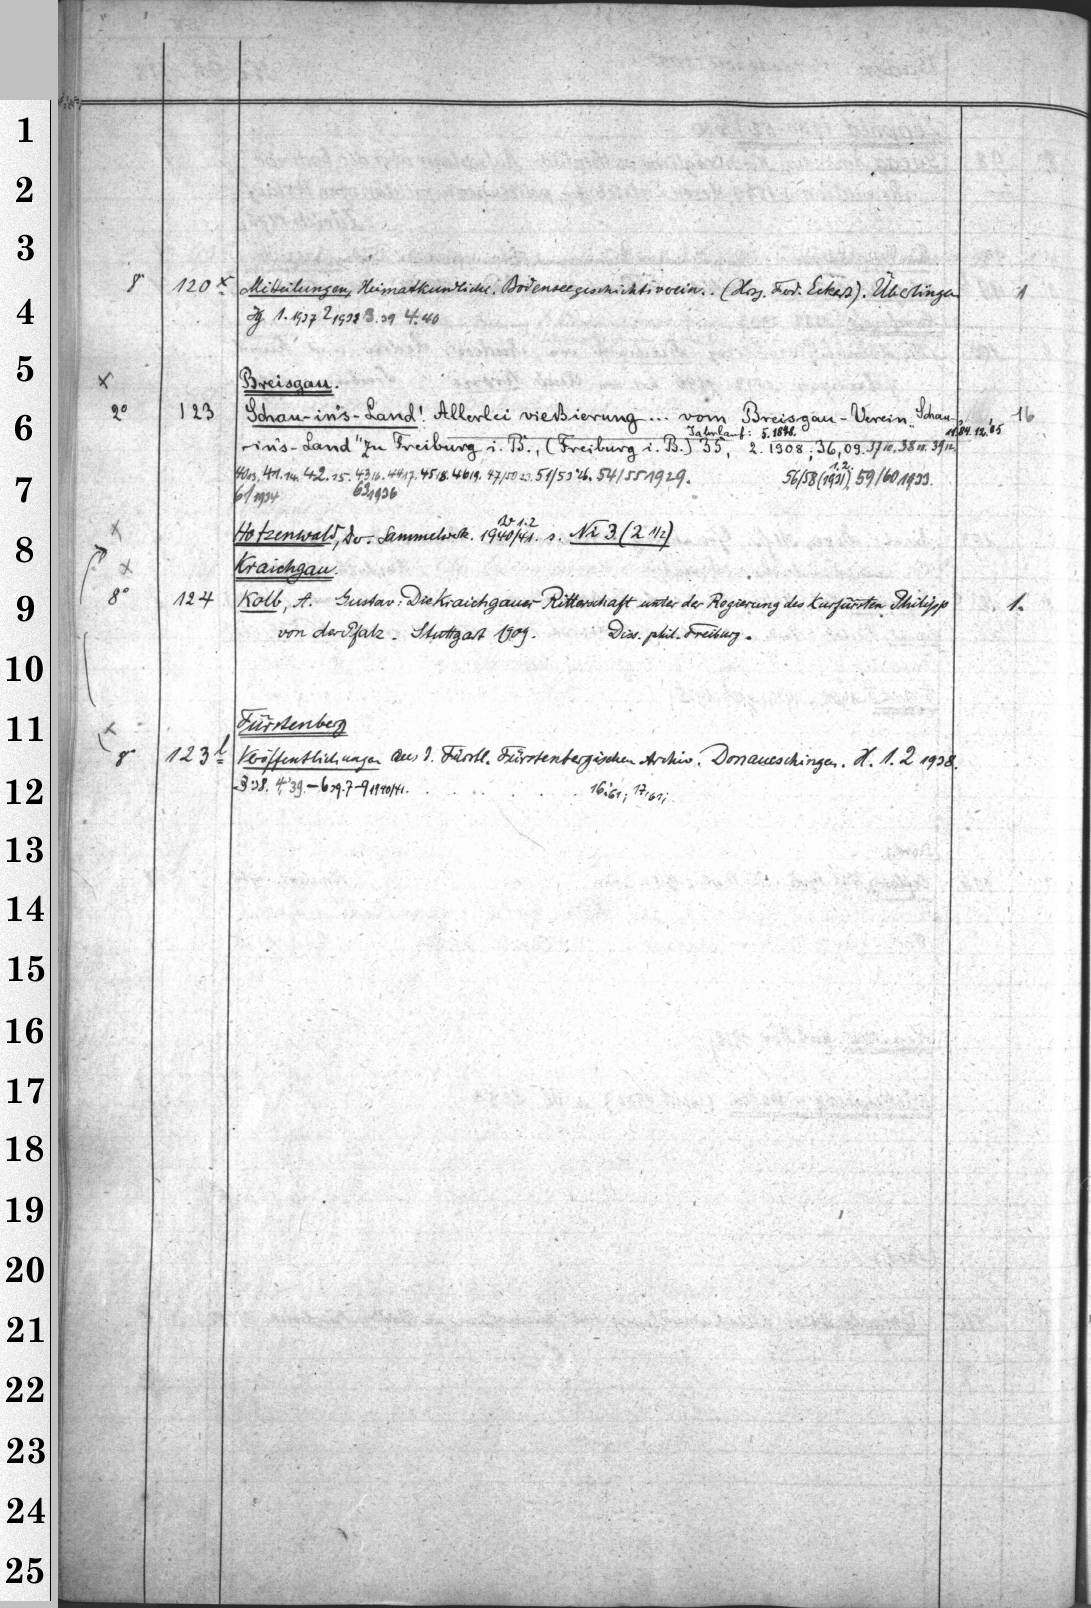 8° 120 x Mitteilungen, Heimatkundliche. Bodenseegeschichtsverein.. (Hrsg. Frd. Eckert). Überlingen 1
Jg. 1. 1937 2 1938 3. 39 4. 40
x Breisgau.
2° 123 Schau-in's-Land! Allerlei vießierung ... vom Breisgau-Verein „Schau- 16
Jahrlauf: 5. 1878. 11.'84. 12.'85
-in's-Land" zu Freiburg i. B., (Freiburg i. B.) 35, 2. 1908; 36, 09. 37 10. 38 11. 39 12.
40 13. 41. 14. 42. 15. 43 16. 44 17. 45 18. 46 19. 47/50 23. 51/53 '26. 54/55 1929. 56/58 (1931) 1. 2. 59/60 1933.
61 1934 63 1936
x Hotzenwald, Der. Sammelwerk. 1940/41. s. Nr 3 (2 1/2)
x Kraichgau.
8° 124 Kolb, A. Gustav: Die Kraichgauer Ritterschaft unter der Regierung des Kurfürsten Philipp 1.
von der Pfalz. Stuttgart 1909. Diss. phil. Freiburg.
x Fürstenberg
8° 123 l Veröffentlichungen aus d. Fürstl. Fürstenbergischen Archiv. Donaueschingen. H. 1. 2 1938.
3 '38. 4 '39. – 6 39. 7–9 1940/41. 16.'61; 17,'61;